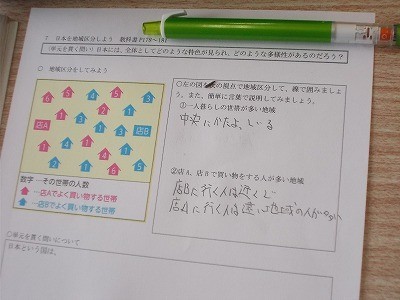 7 日本を地域区分しよう 教科書P178~181
(単元を貫く問い) 日本には、全体としてどのような特色が見られ、どのような多様性があるのだろう?
○ 地域区分をしてみよう
店A
店B
数字…その世帯の人数
…店Aでよく買い物する世帯
…店Bでよく買い物する世帯
○左の図を の視点で地域区分して、線で囲みましょう。また、簡単に言葉で説明してみましょう。
①一人暮らしの世帯が多い地域
中央にかたよっている
②店A、店Bで買い物をする人が多い地域
店Bに行く人は近くて
店Aに行く人は遠い地域の人が
○単元を貫く問いについて
日本という国は、